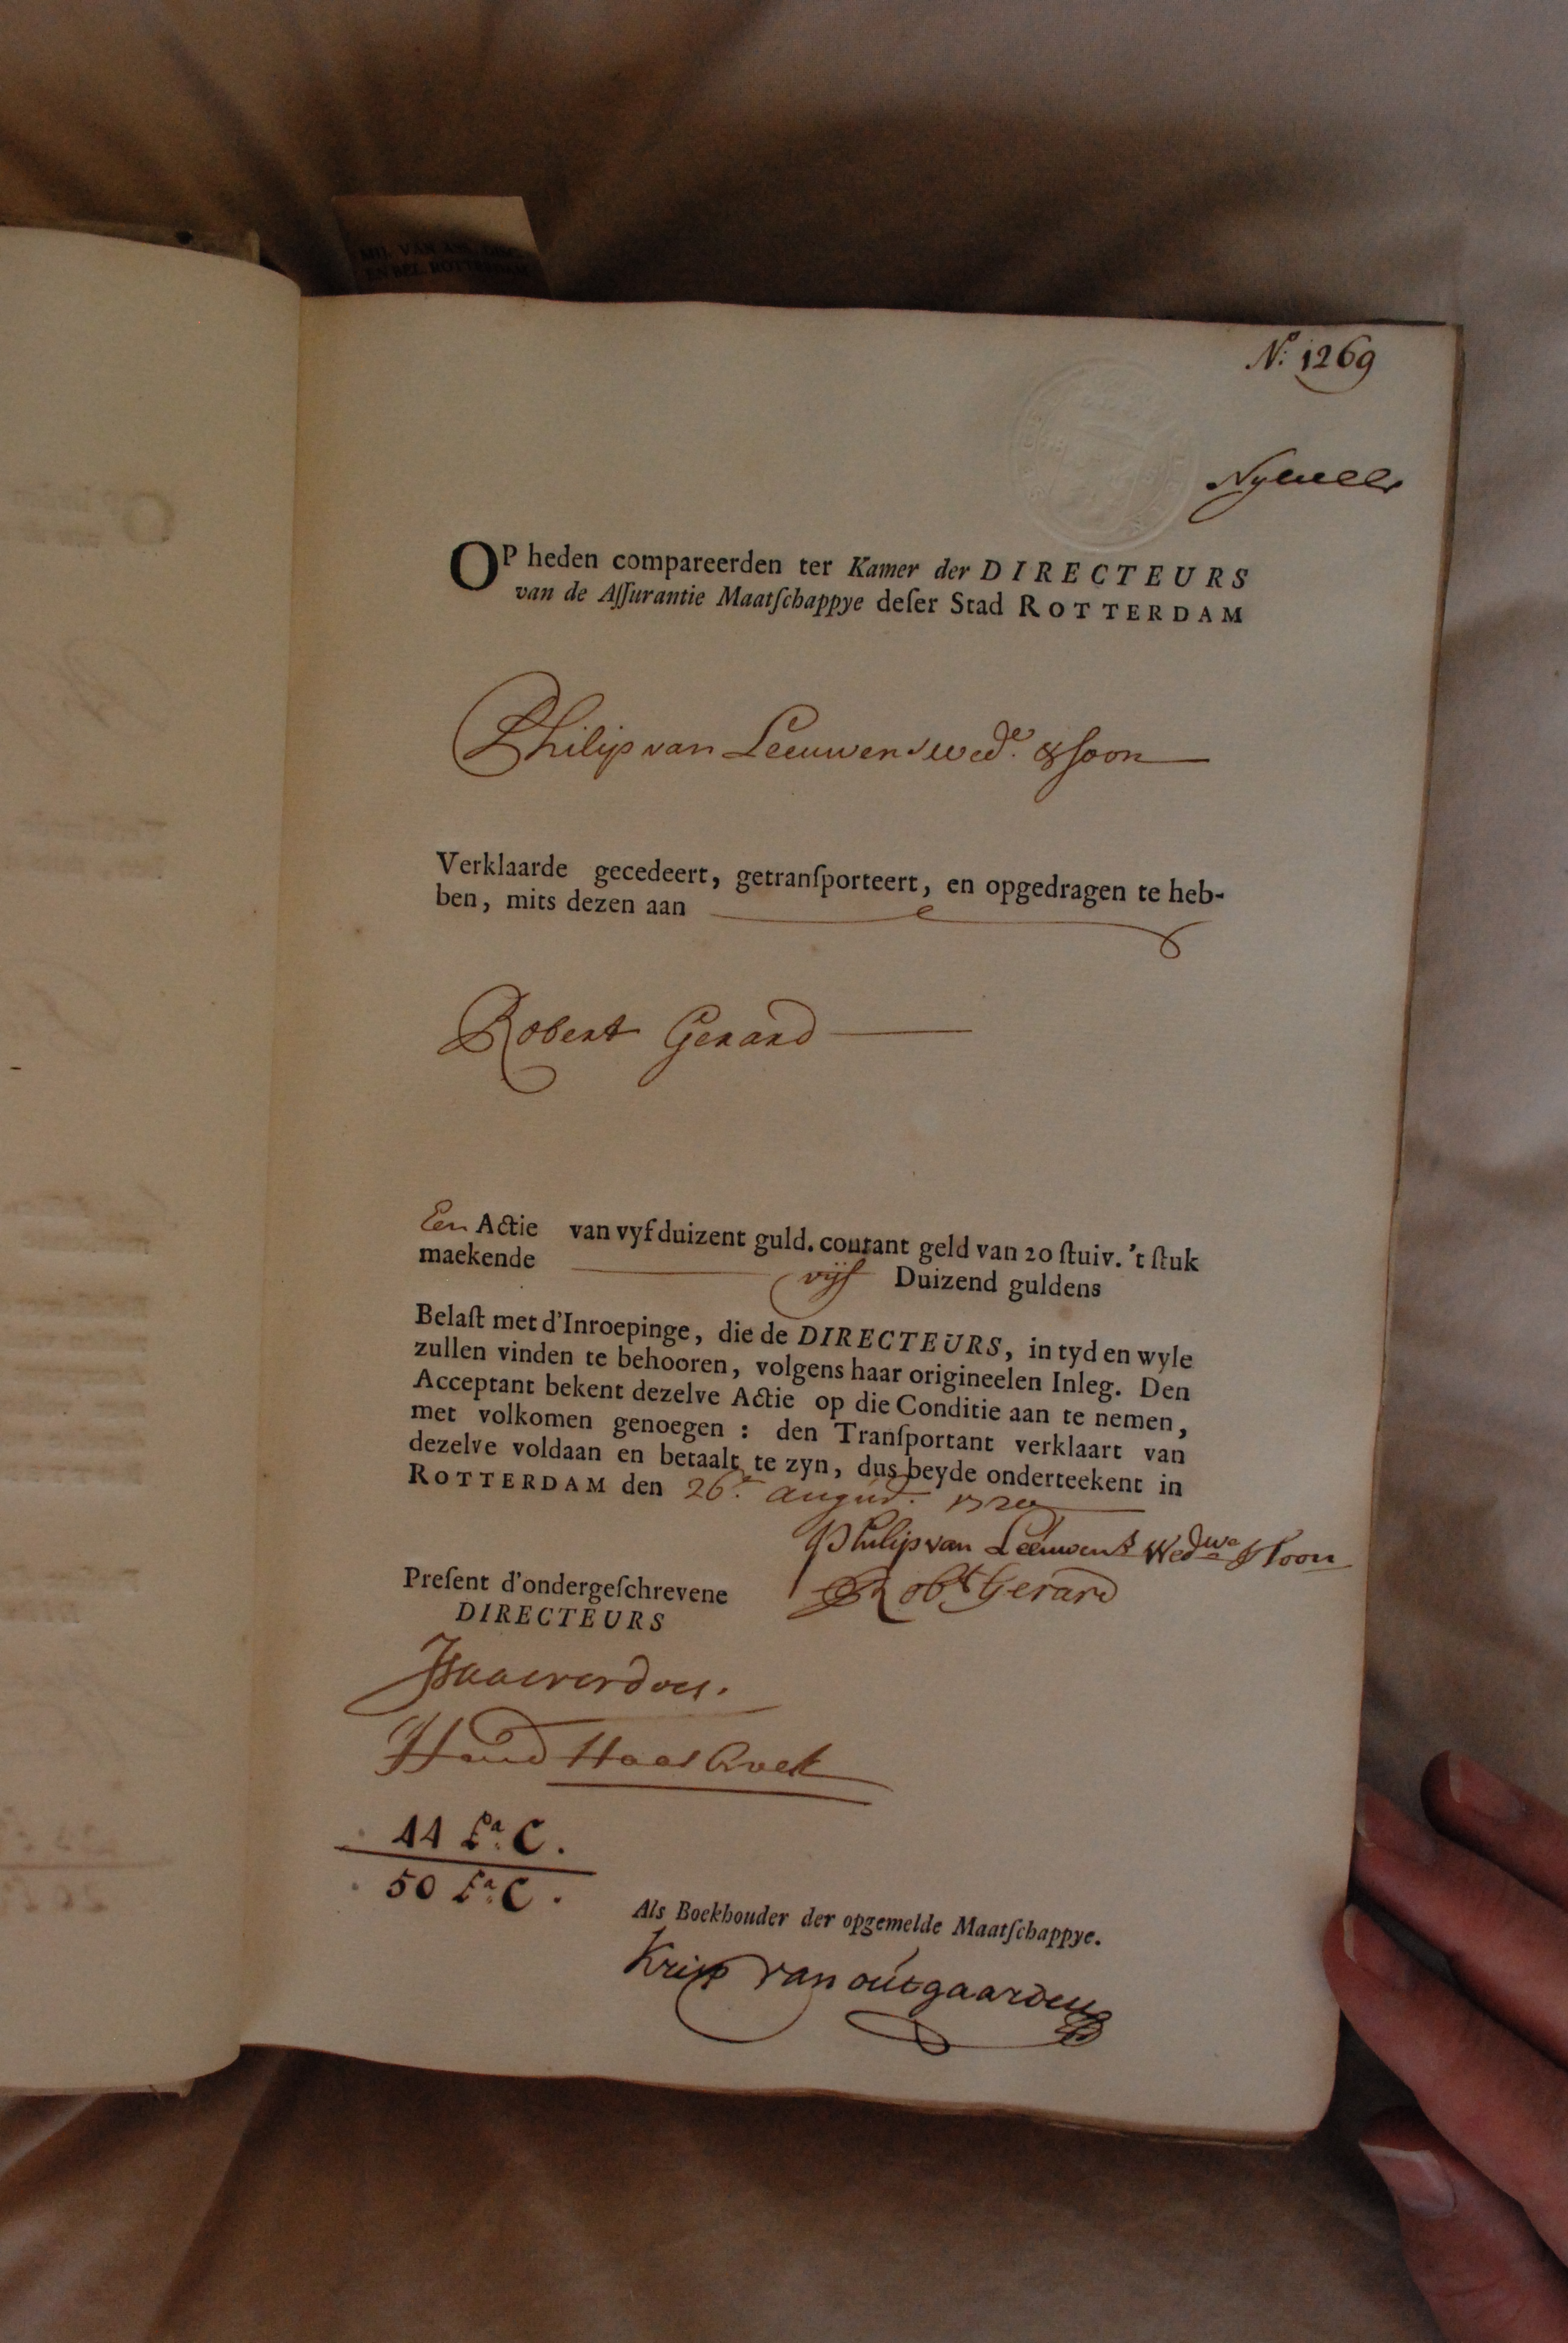 MIJ. VAN ASS. DISC.
EN BEL. ROTTERDAM
No: 1269
OP heden compareerden ter Kamer der DIRECTEURS
van de Aſſurantie Maatſchappye deſer Stad ROTTERDAM
Philip van Leeuwens wede. & soon
Verklaarde gecedeert, getranſporteert, en opgedragen te heb-
ben, mits dezen aan
Robert Gerard
Een Actie van vyf duizent guld. courant geld van 20 ſtuiv. 't ſtuk
maekende vijf Duizend guldens
Belaſt met d'Inroepinge, die de DIRECTEURS, in tyd en wyle
zullen vinden te behooren, volgens haar origineelen Inleg. Den
Acceptant bekent dezelve Actie op die Conditie aan te nemen,
met volkomen genoegen : den Tranſportant verklaart van
dezelve voldaan en betaalt te zyn, dus beyde onderteekent in
ROTTERDAM den 26e. augus. 1720
Philip van Leeuwens Wedwe & Soon
Robt Gerard
Preſent d'ondergeſchrevene
DIRECTEURS
44 La. C.
50 La. C.
Als Boekhouder der opgemelde Maatſchappye.
Krisp van outgaarden